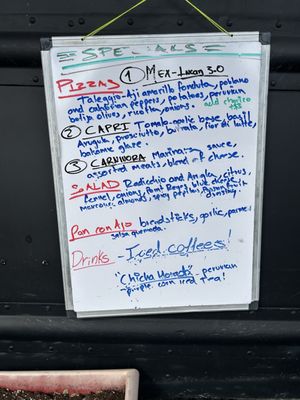 SPECIALS
PIZZAS ① MEX-Incan 3.0
Taleggio-Aji amarillo fonduta, poblano
and calabrian peppers, potatoes, peruvian
botija olives, ricotta, onions. add chorizo
② CAPRI Tomato-garlic base, basil
Arugula, prosciutto, burrata, fior di latte,
balsamic glaze.
③ CARNIVORA Marinara sauce,
assorted meats, blend of cheese.
SALAD Radicchio and Arugula, citrus,
fennel, onions, point Reyes blue cheese
marcona almonds, spicy
Pan con Ajo breadsticks, garlic, parmesan
salsa quemada.
Drinks - Iced coffees!
"Chicha Morada" - peruvian
purple corn iced tea!